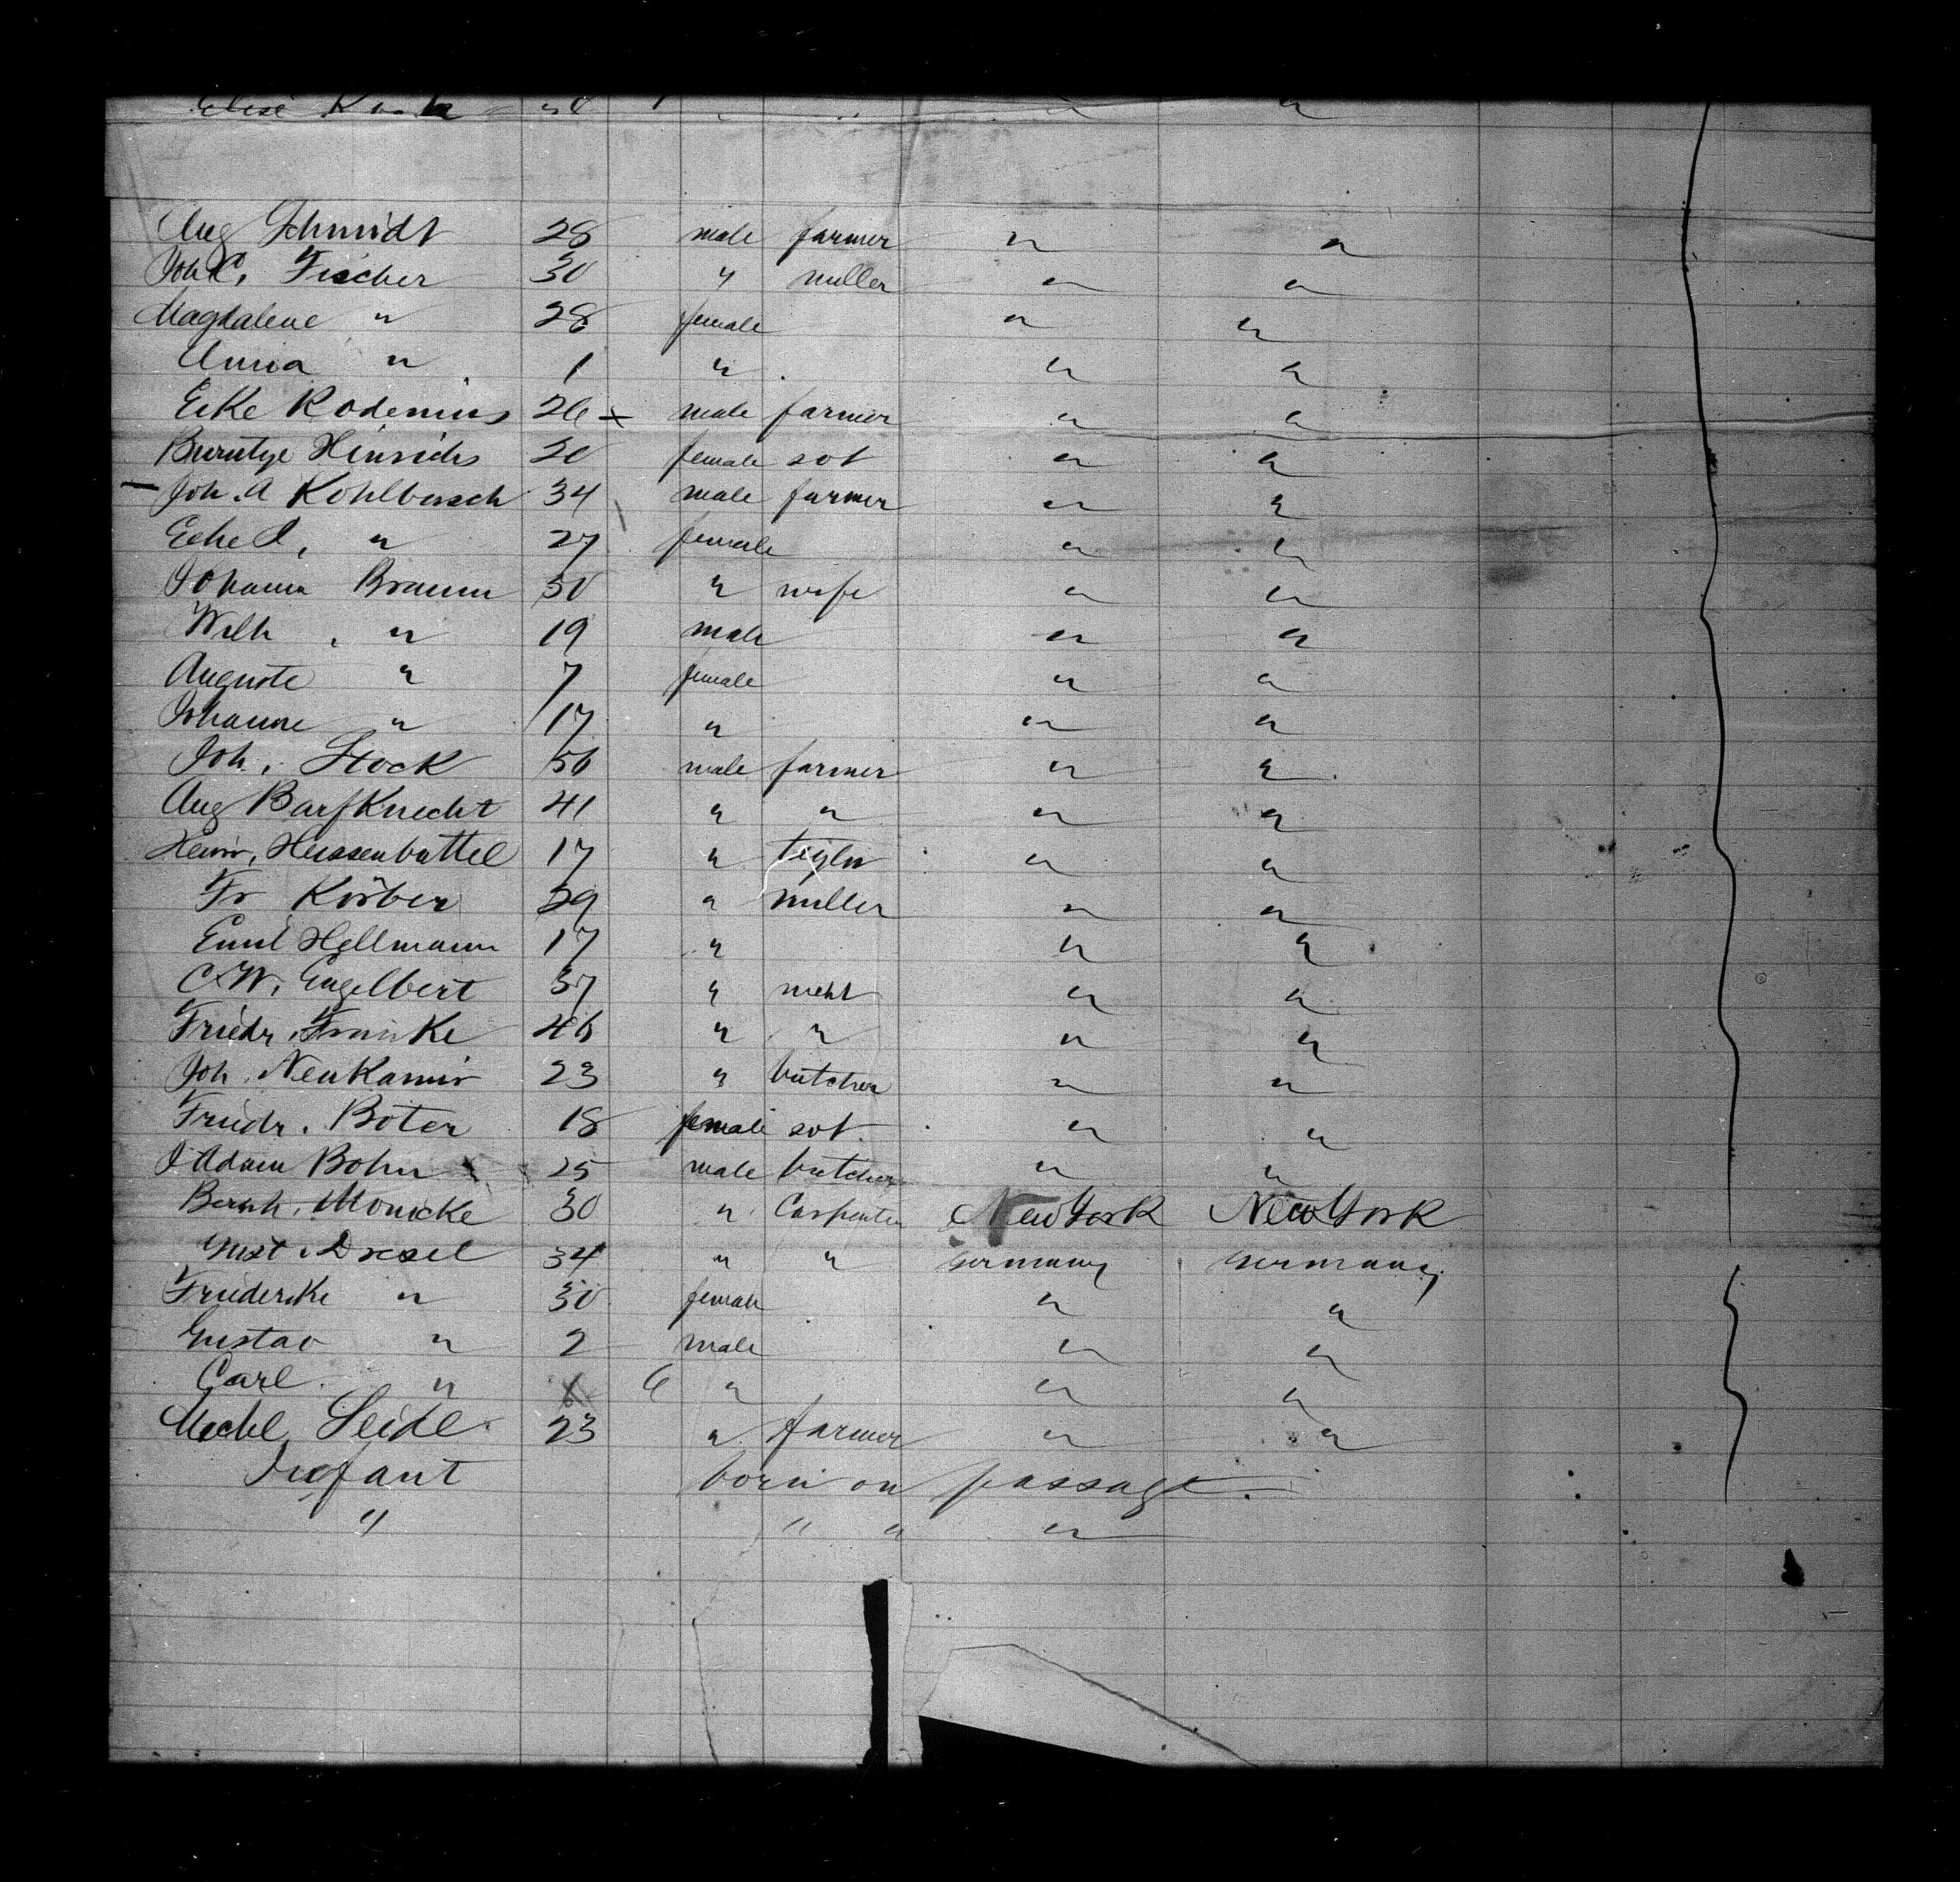 Elise
Aug Schmidt 28 male farmer " "
Joh C. Fischer 30 " miller " "
Magdalene " 28 female " "
Anna " 1 " " "
Eike Rodenius 26 x male farmer " "
Hinrichs 20 female svt " "
Joh. A Kohlbusch 34 male farmer " "
" 27 female " "
Johanna Braun 50 " wife " "
Wilh. " 19 male " "
Auguste " 7 female " "
Johanne " 17 " " "
Joh. Stock 56 male farmer " "
Aug Barfknecht 41 " " " "
Heinr. Heissenbuttel 17 " " "
Fr Körber 29 " miller " "
Emil Hellmann 17 " " "
C.W. Engelbert 37 " mcht " "
Friedr. Franke 46 " " " "
Joh. Neukamm 23 " butcher " "
Friedr. Boter 18 female svt. " "
J Adam Bohn 25 male butcher " "
Bernh. Monicke 30 " Carpenter New York New York
Gust. Dresel 34 " " Germany Germany
Friederike " 30 female " "
Gustav " 2 male " "
Carl " 6 " " "
Michl Seidl 23 " farmer " "
Infant born on passage.
" " " "